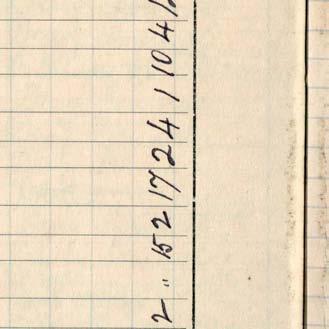 2 " 15 2 17 2 4 1 10 4